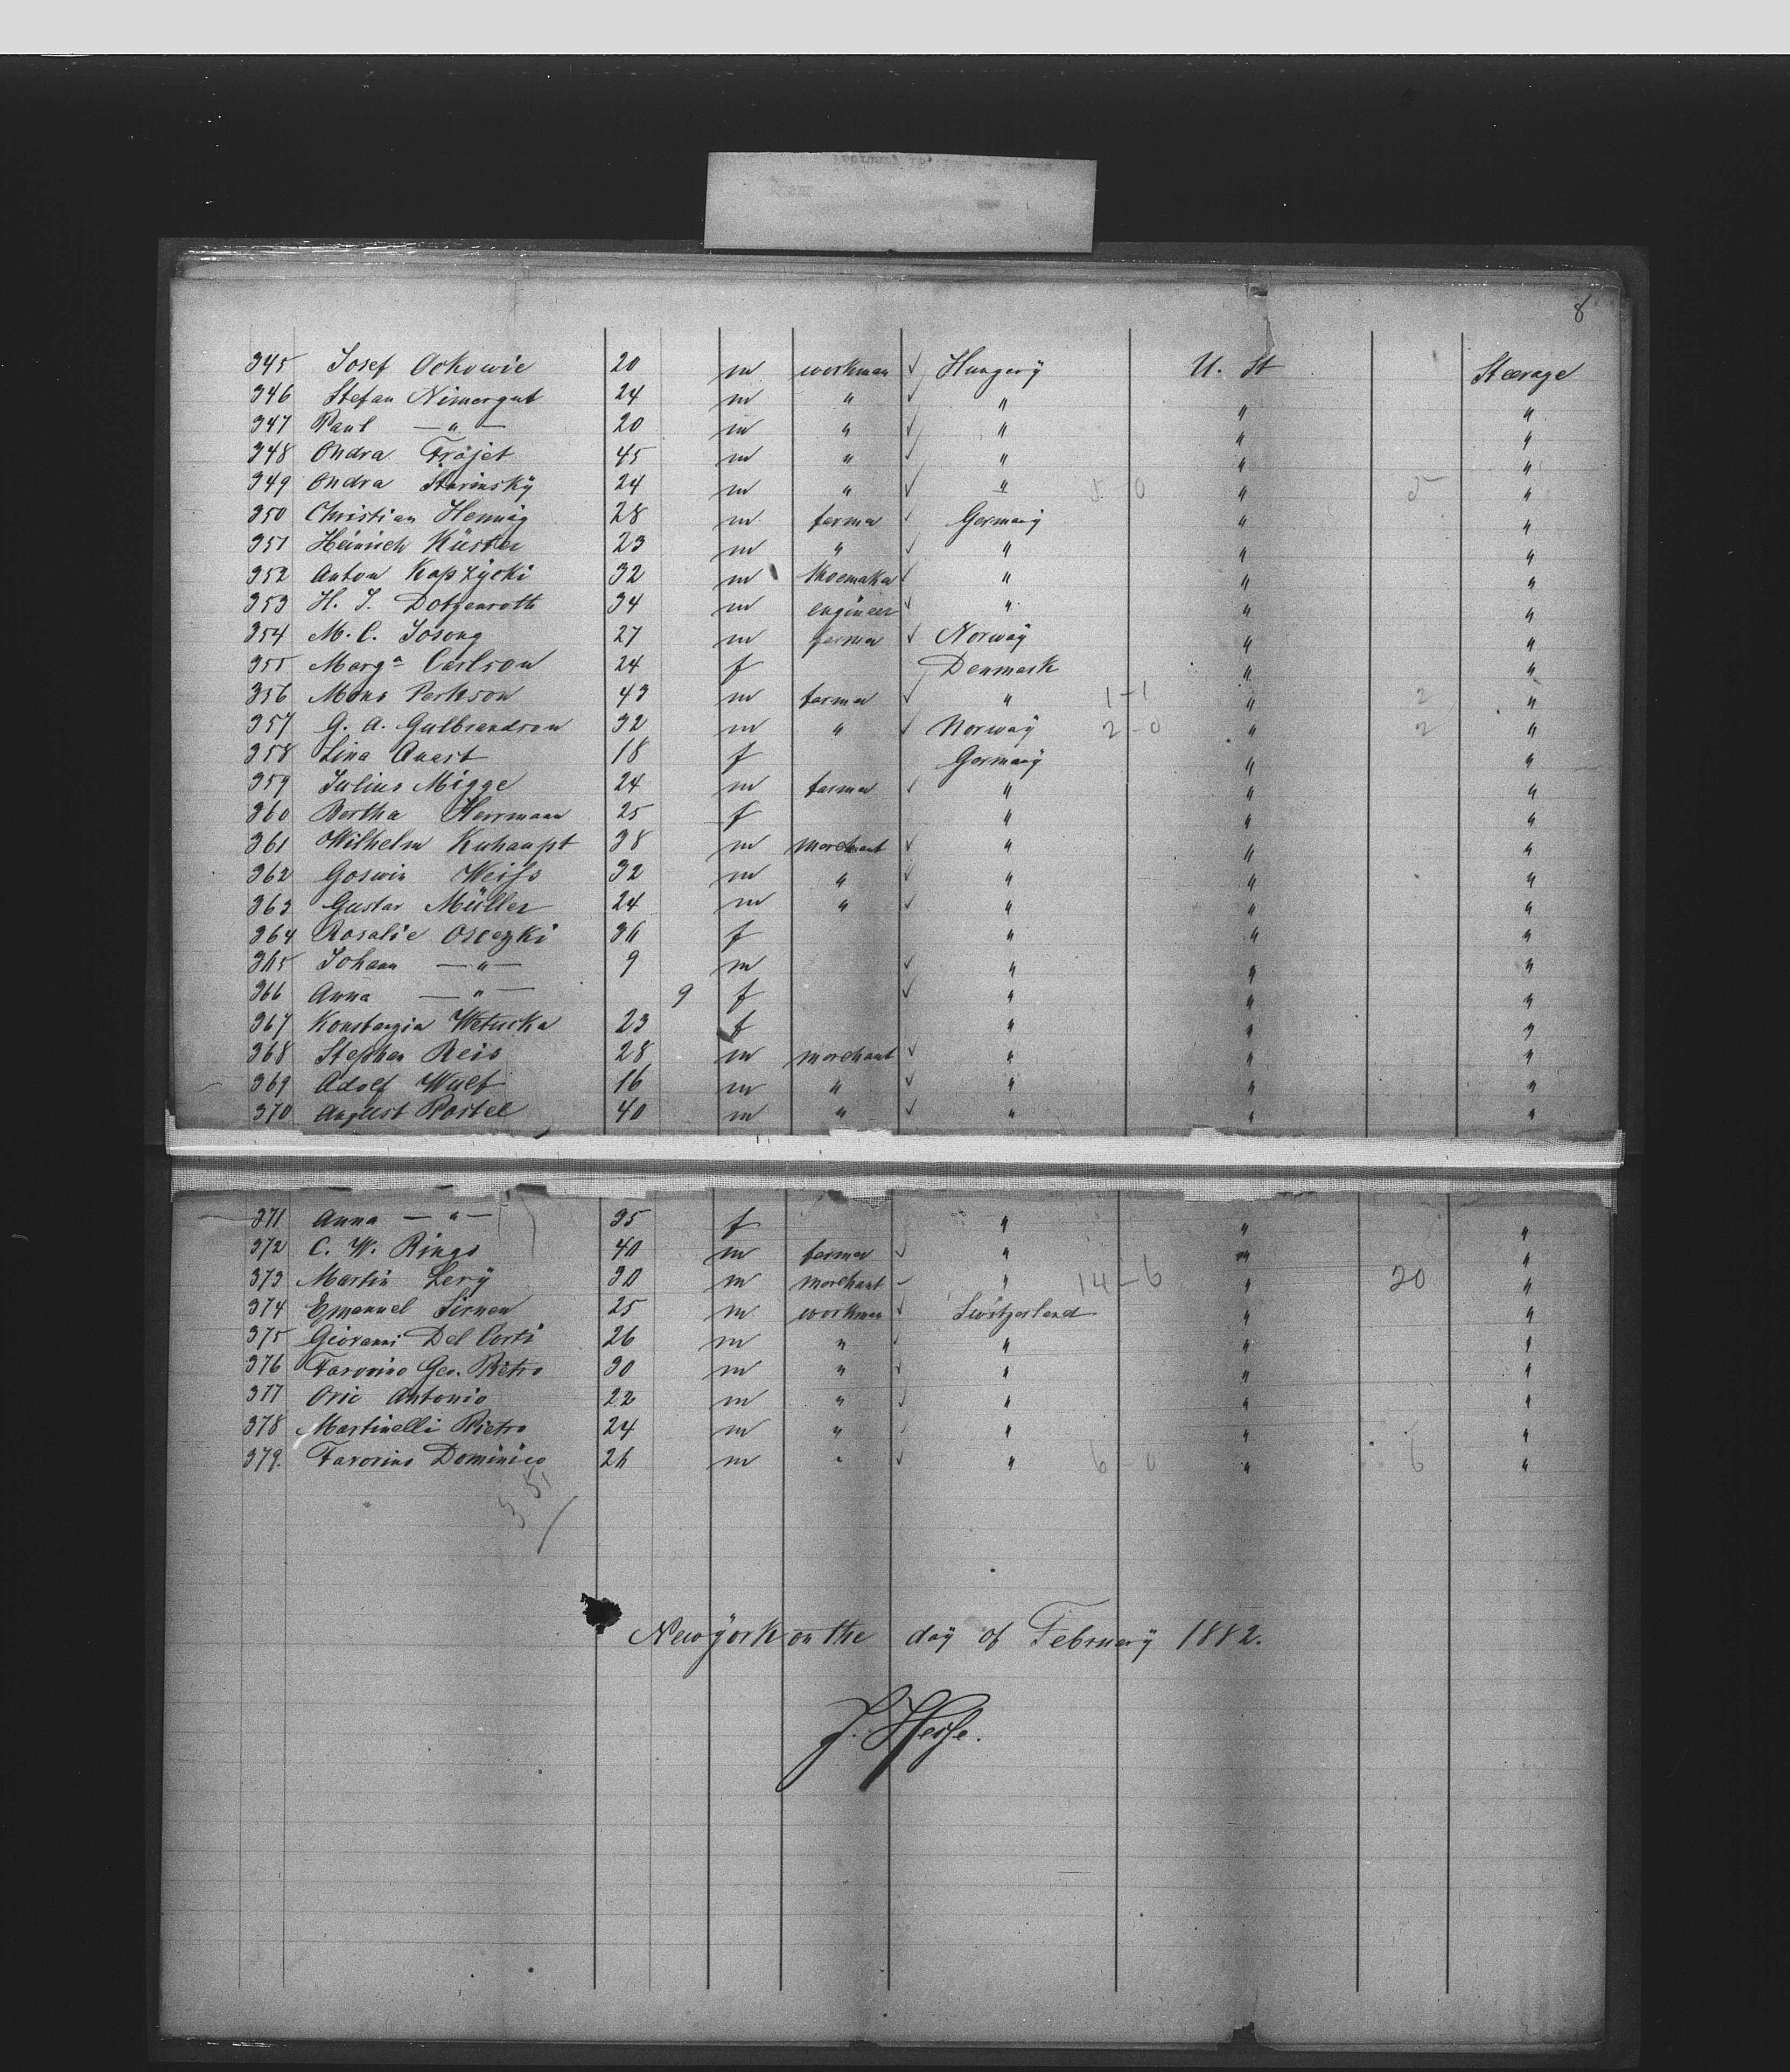 8
345 Josef Ockowie 20 m workman ✓ Hungerÿ U. St Steerage
346 Stefan Nimergut 24 m " ✓ " " "
347 Paul — " — 20 m " ✓ " " "
348 Ondra Frojet 45 m " ✓ " " "
349 Ondra Starinskÿ 24 m " ✓ " 5 0 " 5 "
350 Christian Hennig 28 m farmer ✓ Germanÿ " "
351 Heinrich Küster 23 m " ✓ " " "
352 Anton Kapzÿcki 32 m shoemaker ✓ " " "
353 H. J. Dotzenroth 34 m engineer ✓ " " "
354 M. C. Josong 27 m farmer ✓ Norwaÿ " "
355 Marga Carlson 24 f Denmark " "
356 Mons Perkson 43 m farmer ✓ " 1-1 " 2 "
357 G. A. Gulbrandson 32 m " ✓ Norwaÿ 2-0 " 2 "
358 Lina Quast 18 f Germanÿ " "
359 Julius Migge 24 m farmer ✓ " " "
360 Bertha Herrmann 25 f " " "
361 Wilhelm Kuhaupt 38 m merchant ✓ " " "
362 Goswin Weiss 32 m " ✓ " " "
363 Gustav Müller 24 m " ✓ " " "
364 Rosalie Oscezki 36 f " " "
365 Johann — " — 9 m ✓ " " "
366 Anna — " — 9 f ✓ " " "
367 Konstanzia Wetucka 23 f " " "
368 Stephan Reis 28 m merchant ✓ " " "
369 Adolf Wulf 16 m " ✓ " " "
370 August Postel 40 m " ✓ " " "
371 Anna — " — 35 f " " "
372 C. W. Rings 40 m farmer ✓ " " "
373 Martin Lerÿ 30 m merchant - " 14-6 " 20 "
374 Emanuel Sirnen 25 m workman ✓ Switzerland " "
375 Giovanni Del Corti 26 m " ✓ " " "
376 Favorino Geo. Pietro 30 m " ✓ " " "
377 Orie Antonio 22 m " ✓ " " "
378 Martinelli Pietro 24 m " ✓ " " "
379. Favorino Dominico 26 m " ✓ " 6-0 " 6 "
Newÿork on the day of Februarÿ 1882.
J. Hesse.